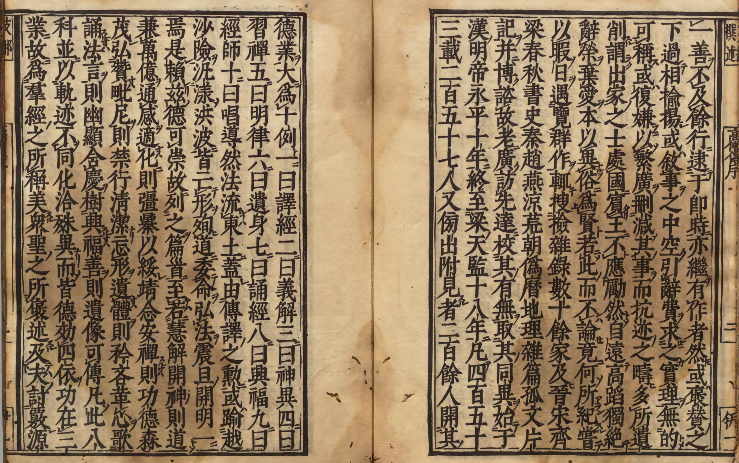 一善不及餘行逮于即時亦繼有作者然或褒贊之
下過相揄揚或敘事之中空引辭費求之實理無的
可稱或復嫌以繁廣刪減其事而抗迹之竒多所遺
削謂出家之士處國賓王不應勵然自遠高蹈獨絕
辭榮棄愛本以異俗為賢若此而不論竟何所紀嘗
以暇日遇覽群作輒搜撿雜錄數十餘家及晉宋齊
梁春秋書史秦趙燕涼荒朝偽曆地理雜篇孤文片
記并博諮故老廣訪先達校其有無取其同異始于
漢明帝永平十年終至梁天監十八年凡四百五十
三載二百五十七人又傍出附見者二百餘人開其
德業大為十例一曰譯經二曰義解三曰神異四曰
習禪五曰明律六曰遺身七曰誦經八曰興福九曰
經師十曰唱導然法流東土蓋由傳譯之勲或踰越
沙險汎漾洪波皆亡形殉道委命弘法震旦開明一
焉是賴茲德可崇故列之篇首至若慧解開神則道
兼萬億通感適化則彊暴以綏靖念安禪則功德森
茂弘贊毗尼則禁行清潔忘形遺體則矜吝革心歌
誦法言則幽顯含慶樹興福善則遺像可傳凡此八
科並以軌迹不同化洽殊異而皆德効四依功在三
業故為羣經之所稱美衆聖之所褒述及夫討覈源